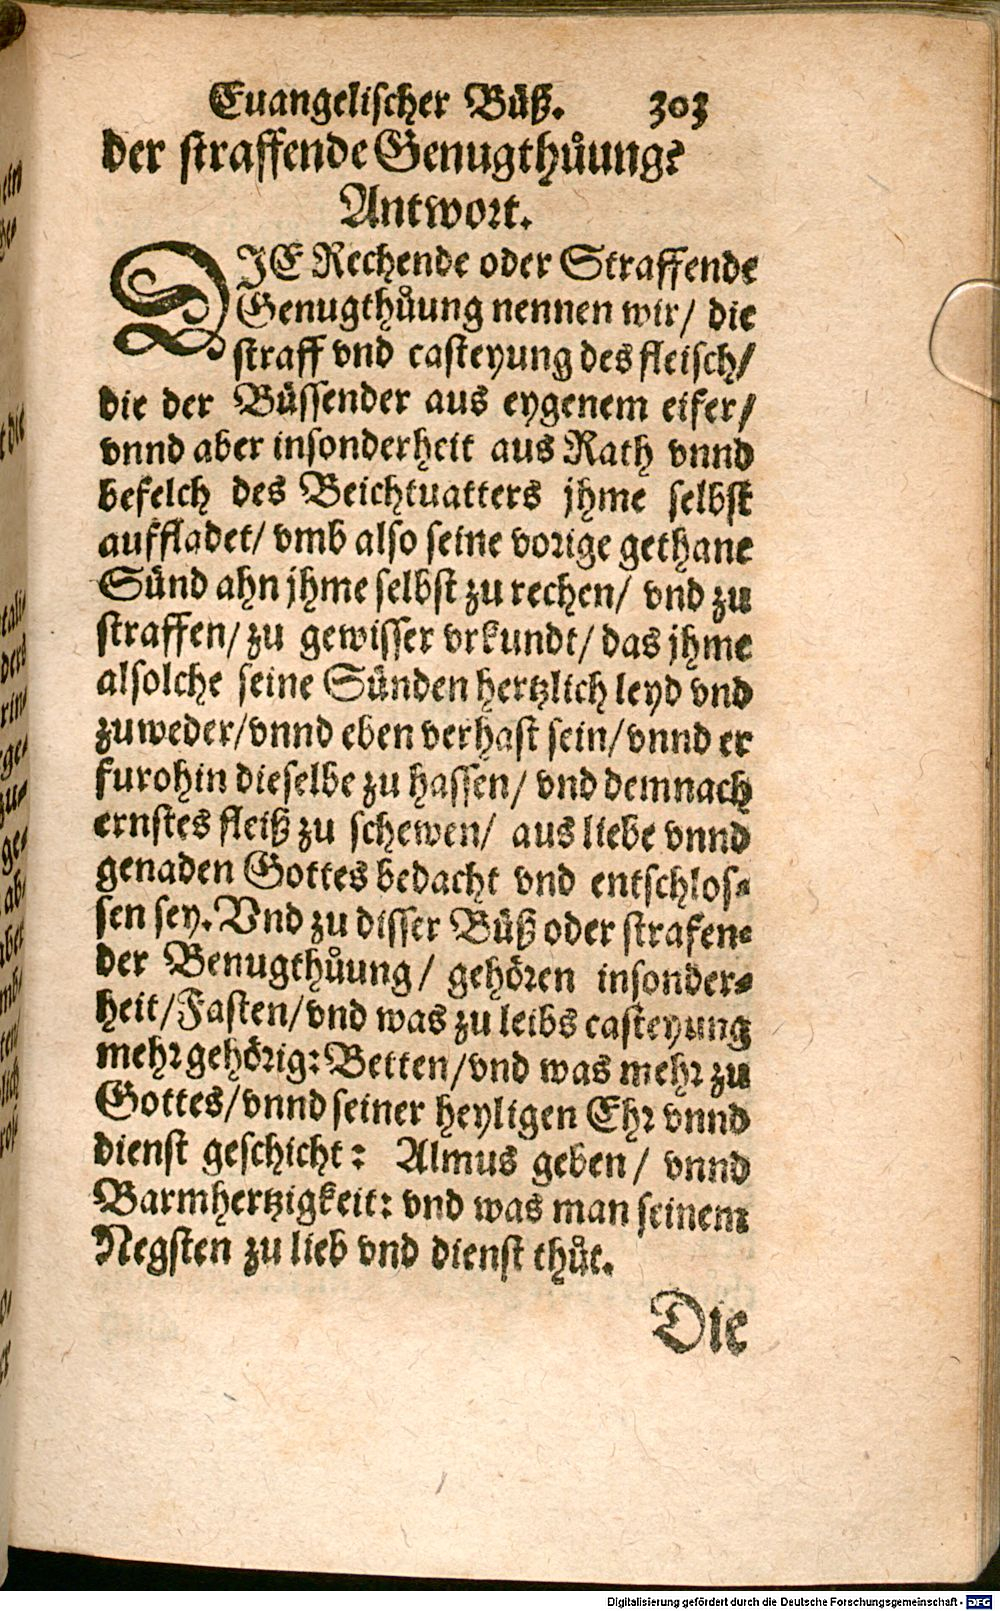 Euangelischer Büß. 303
der straffende Genugthůung?
Antwort.
DIE Rechende oder Straffende
Genugthůung nennen wir/ die
straff vnd casteyung des fleisch/
die der Büssender aus eygenem eifer/
vnnd aber insonderheit aus Rath vnnd
befelch des Beichtuatters jhme selbst
auffladet/ vmb also seine vorige gethane
Sünd ahn jhme selbst zu rechen/ vnd zu
straffen/ zu gewisser vrkundt/ das jhme
alsolche seine Sünden hertzlich leyd vnd
zuweder/ vnnd eben verhast sein/ vnnd er
furohin dieselbe zu hassen/ vnd demnach
ernstes fleiß zu schewen/ aus liebe vnnd
genaden Gottes bedacht vnd entschlos-
sen sey. Vnd zu disser Büß oder strafen-
der Benugthůung/ gehören insonder-
heit/ Fasten/ vnd was zu leibs casteyung
mehr gehörig: Betten/ vnd was mehr zu
Gottes/ vnnd seiner heyligen Ehr vnnd
dienst geschicht: Almus geben/ vnnd
Barmhertzigkeit: vnd was man seinem
Negsten zu lieb vnd dienst thůt.
Die
Digitalisierung gefördert durch die Deutsche Forschungsgemeinschaft - DFG